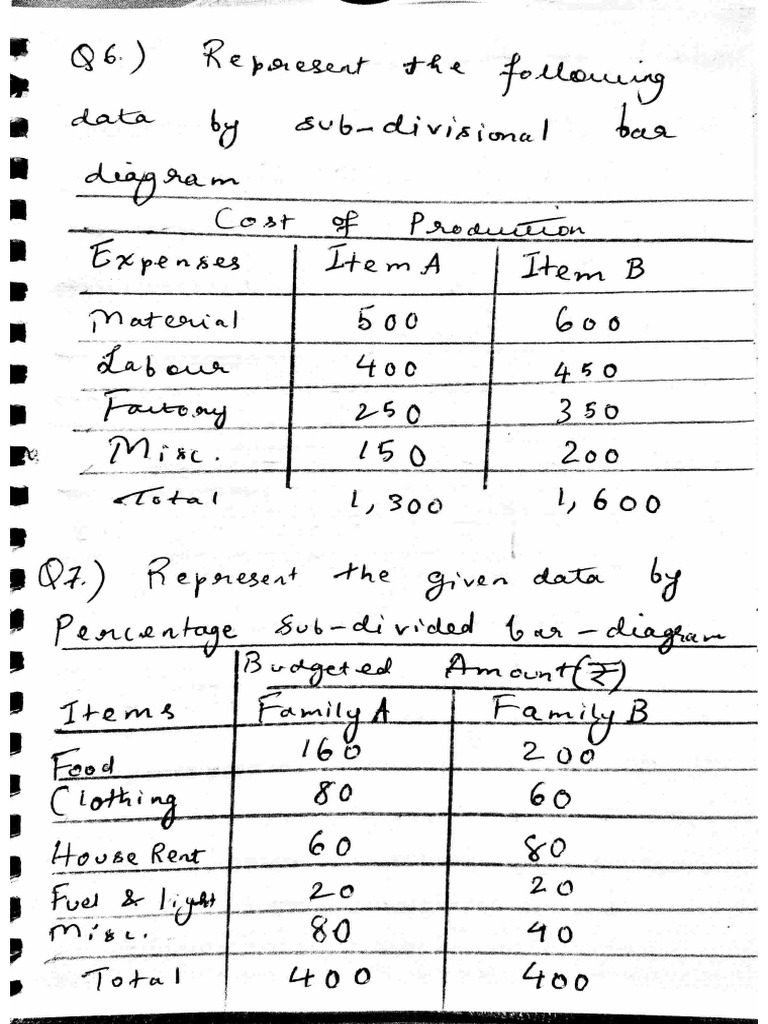 Q6.) Represent the following
data by sub-divisional bar
diagram
Cost of Production
Expenses Item A Item B
Material 500 600
Labour 400 450
Factory 250 350
Misc. 150 200
Total 1,300 1,600
Q7.) Represent the given data by
Percentage sub-divided bar-diagram
Budgeted Amount(₹)
Items Family A Family B
Food 160 200
Clothing 80 60
House Rent 60 80
Fuel & light 20 20
Misc. 80 40
Total 400 400